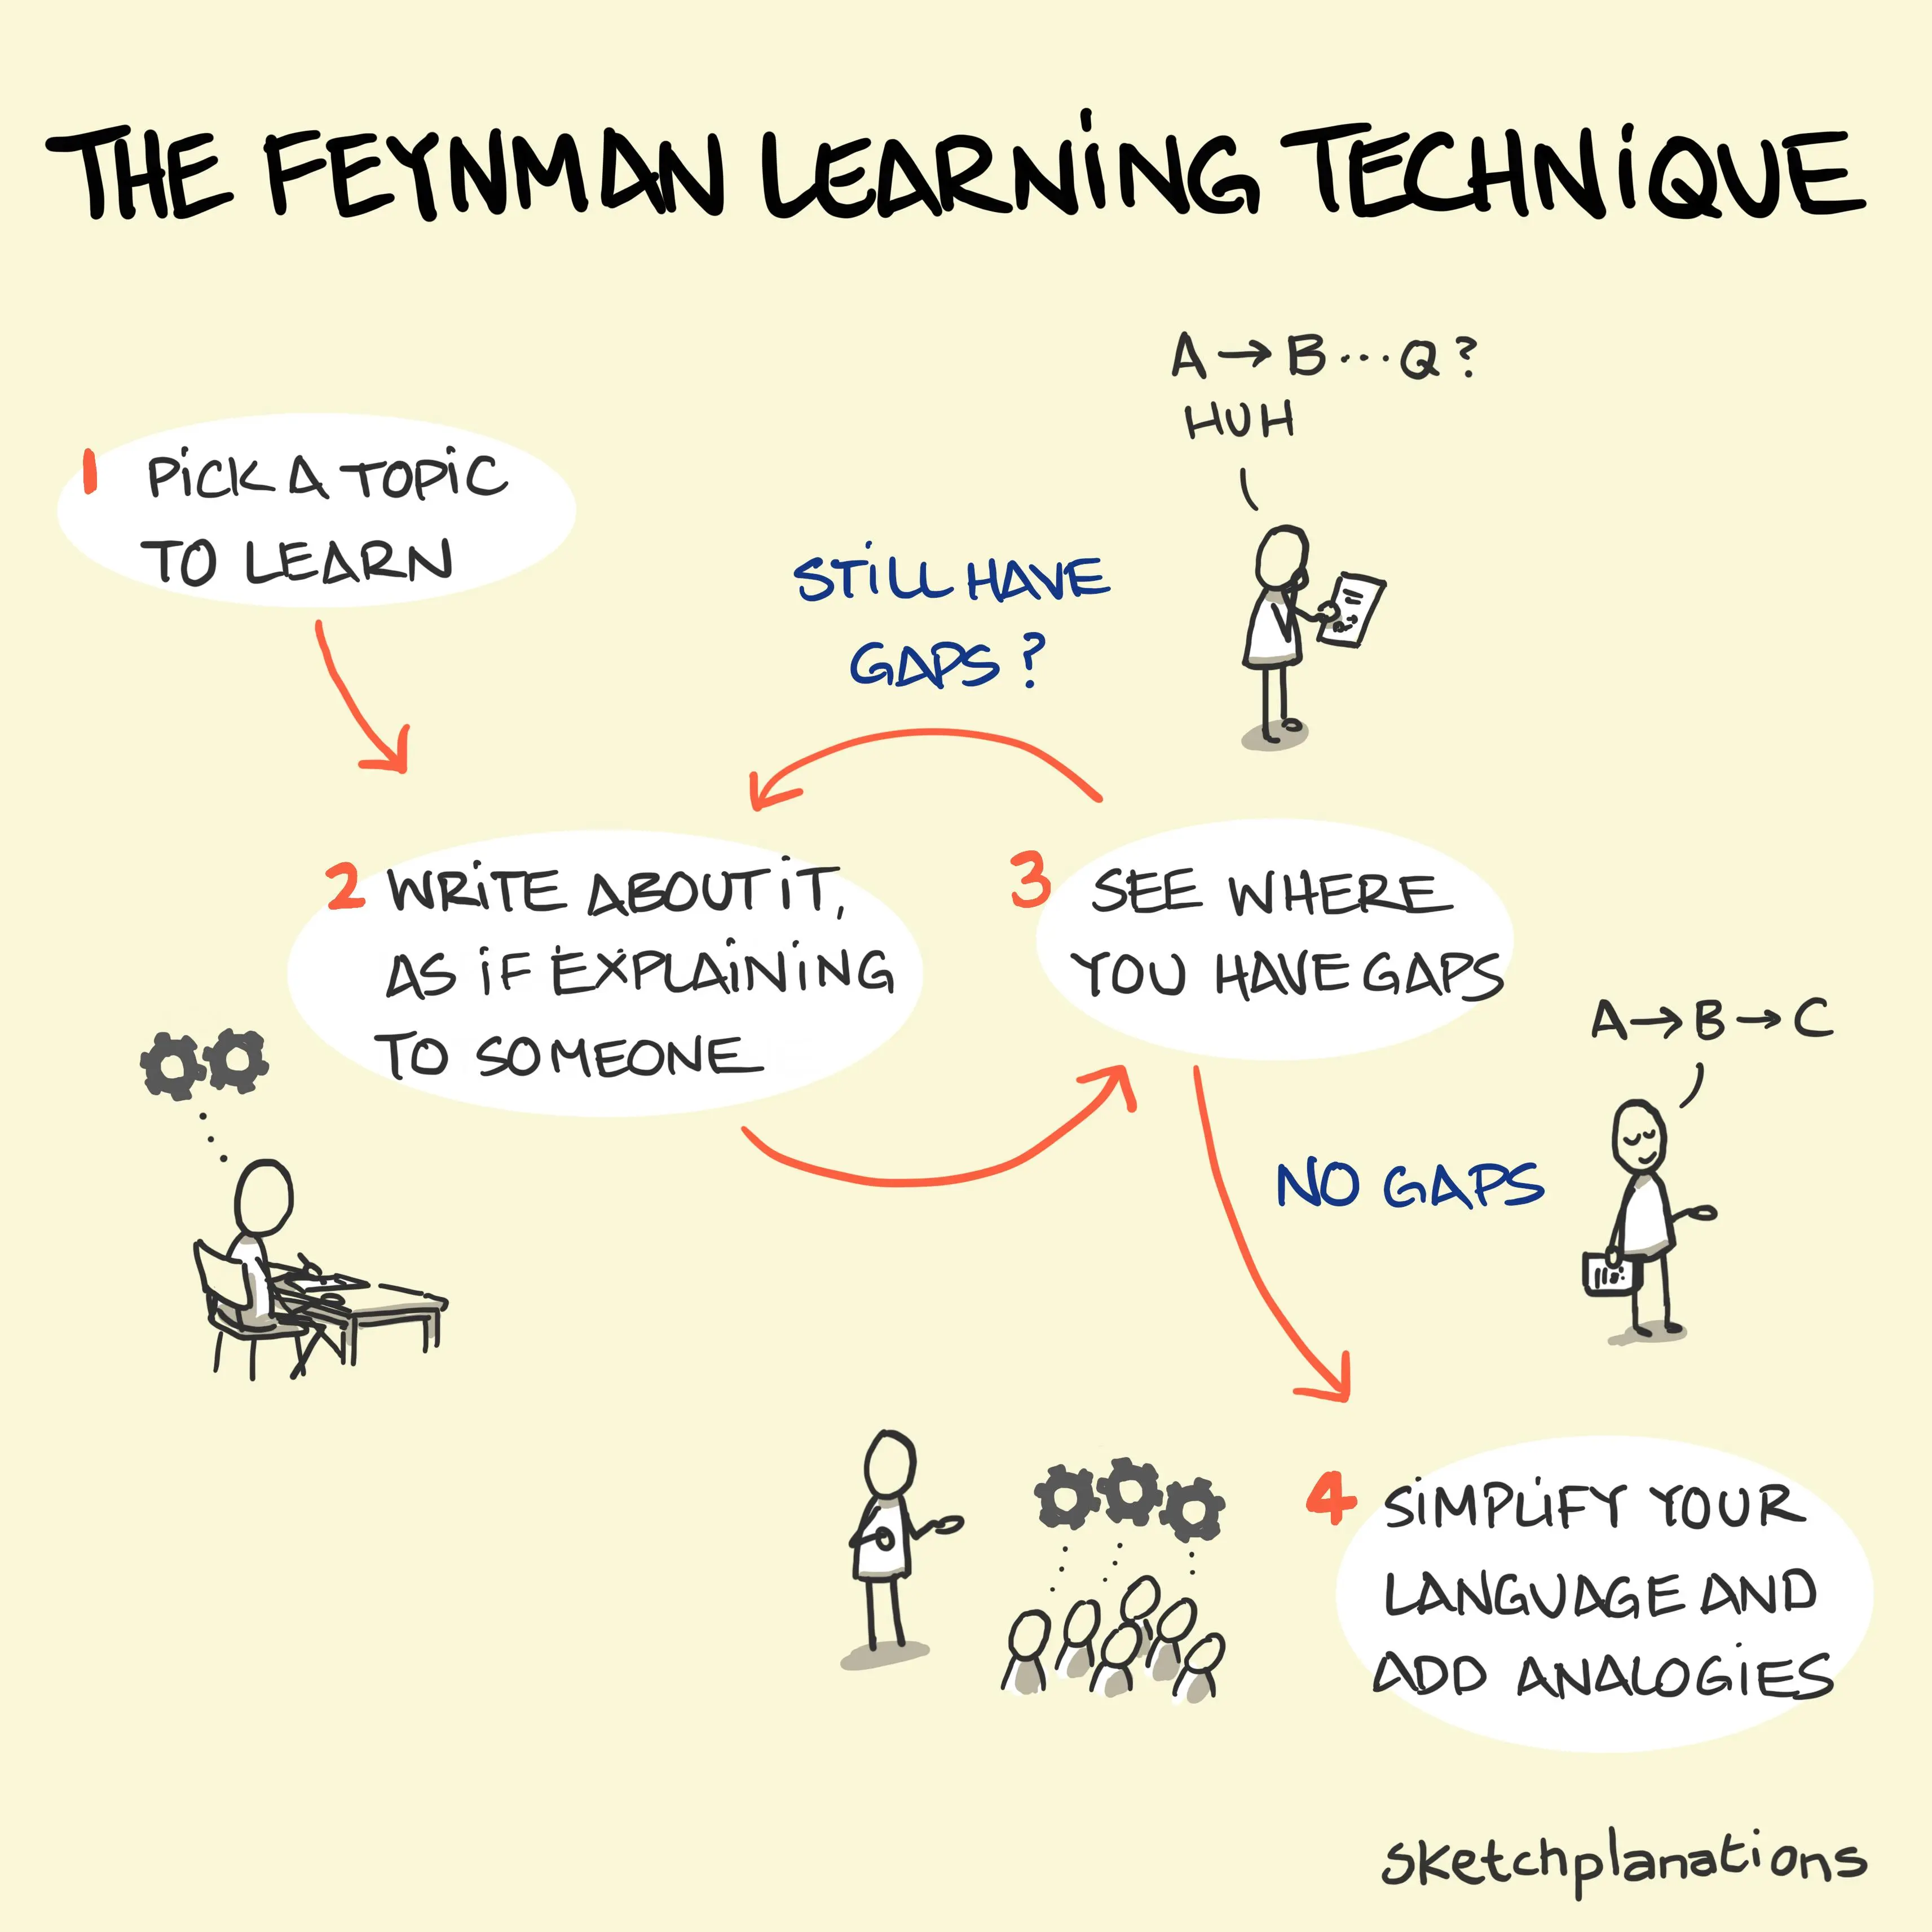 THE FEYNMAN LEARNING TECHNIQUE
A → B ... Q ?
HUH
1 PICK A TOPIC
TO LEARN
STILL HAVE
GAPS ?
2 WRITE ABOUT IT,
AS IF EXPLAINING
TO SOMEONE
3 SEE WHERE
YOU HAVE GAPS
A → B → C
NO GAPS
4 SIMPLIFY YOUR
LANGUAGE AND
ADD ANALOGIES
sketchplanations